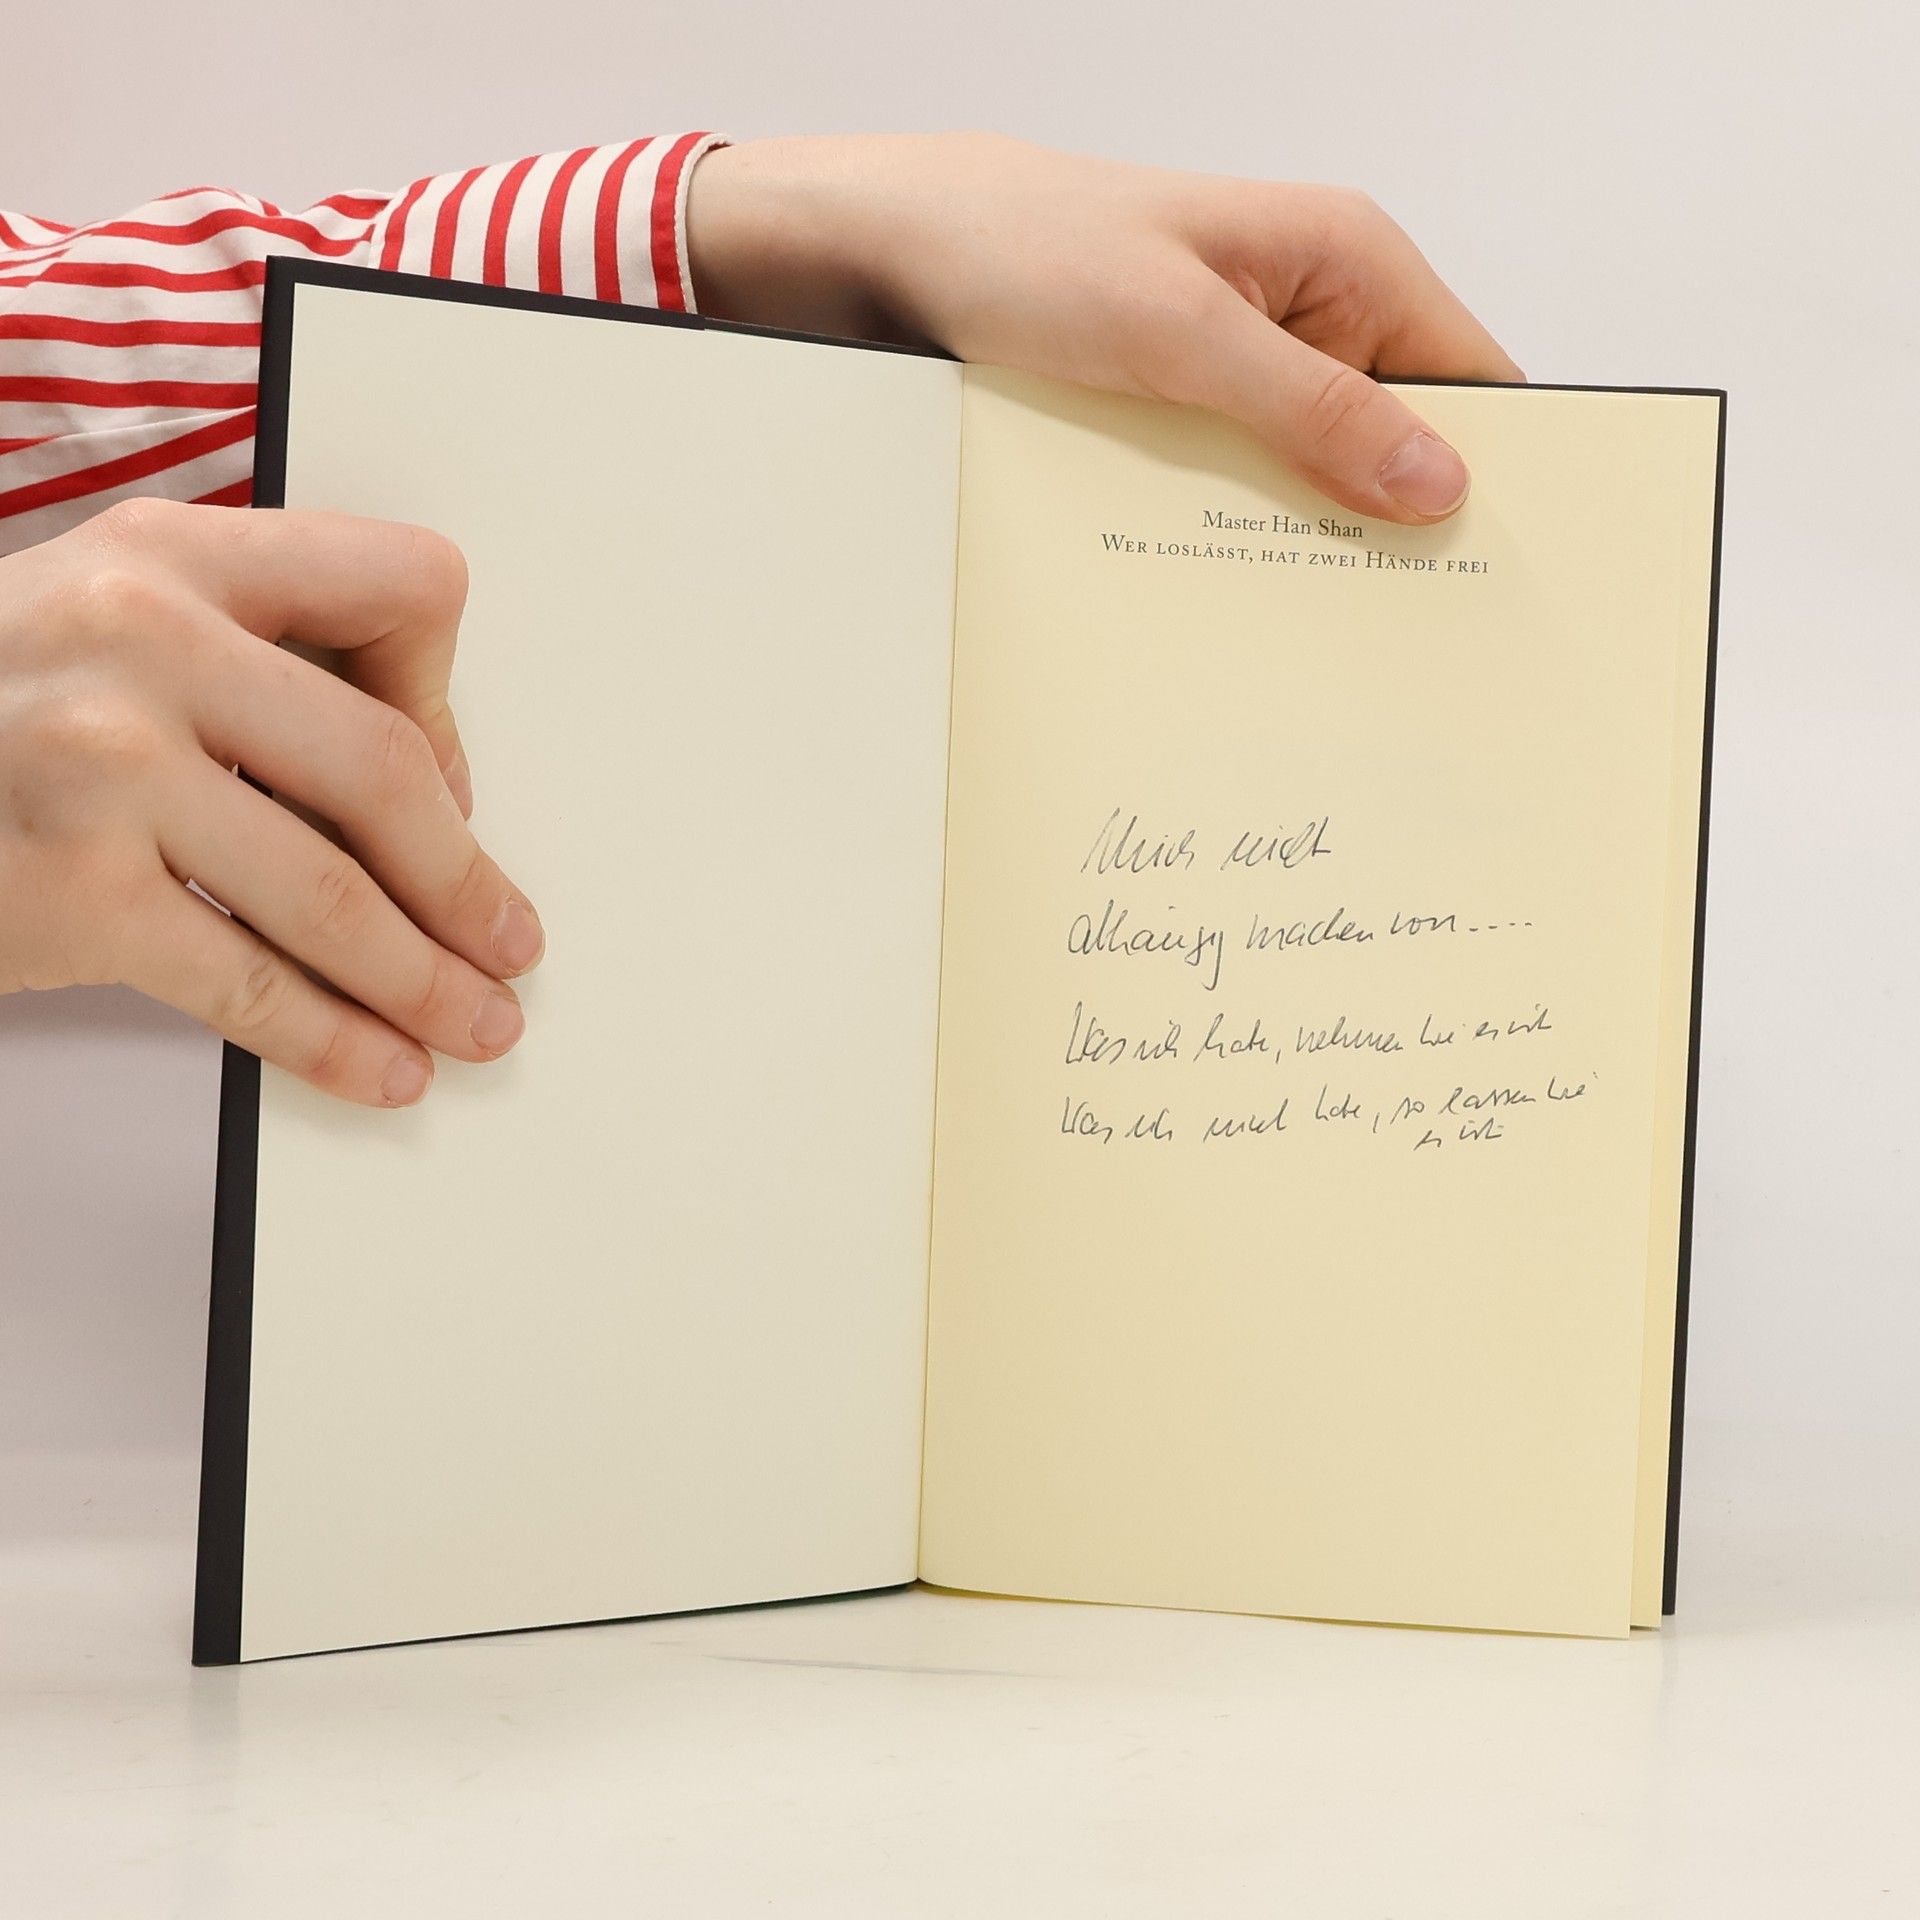 Master Han Shan
Wer loslässt, hat zwei Hände frei
Mich nicht
abhängig machen von ....
Was ich habe, nehmen wie es ist
Was ich nicht habe, so lassen wie
es ist